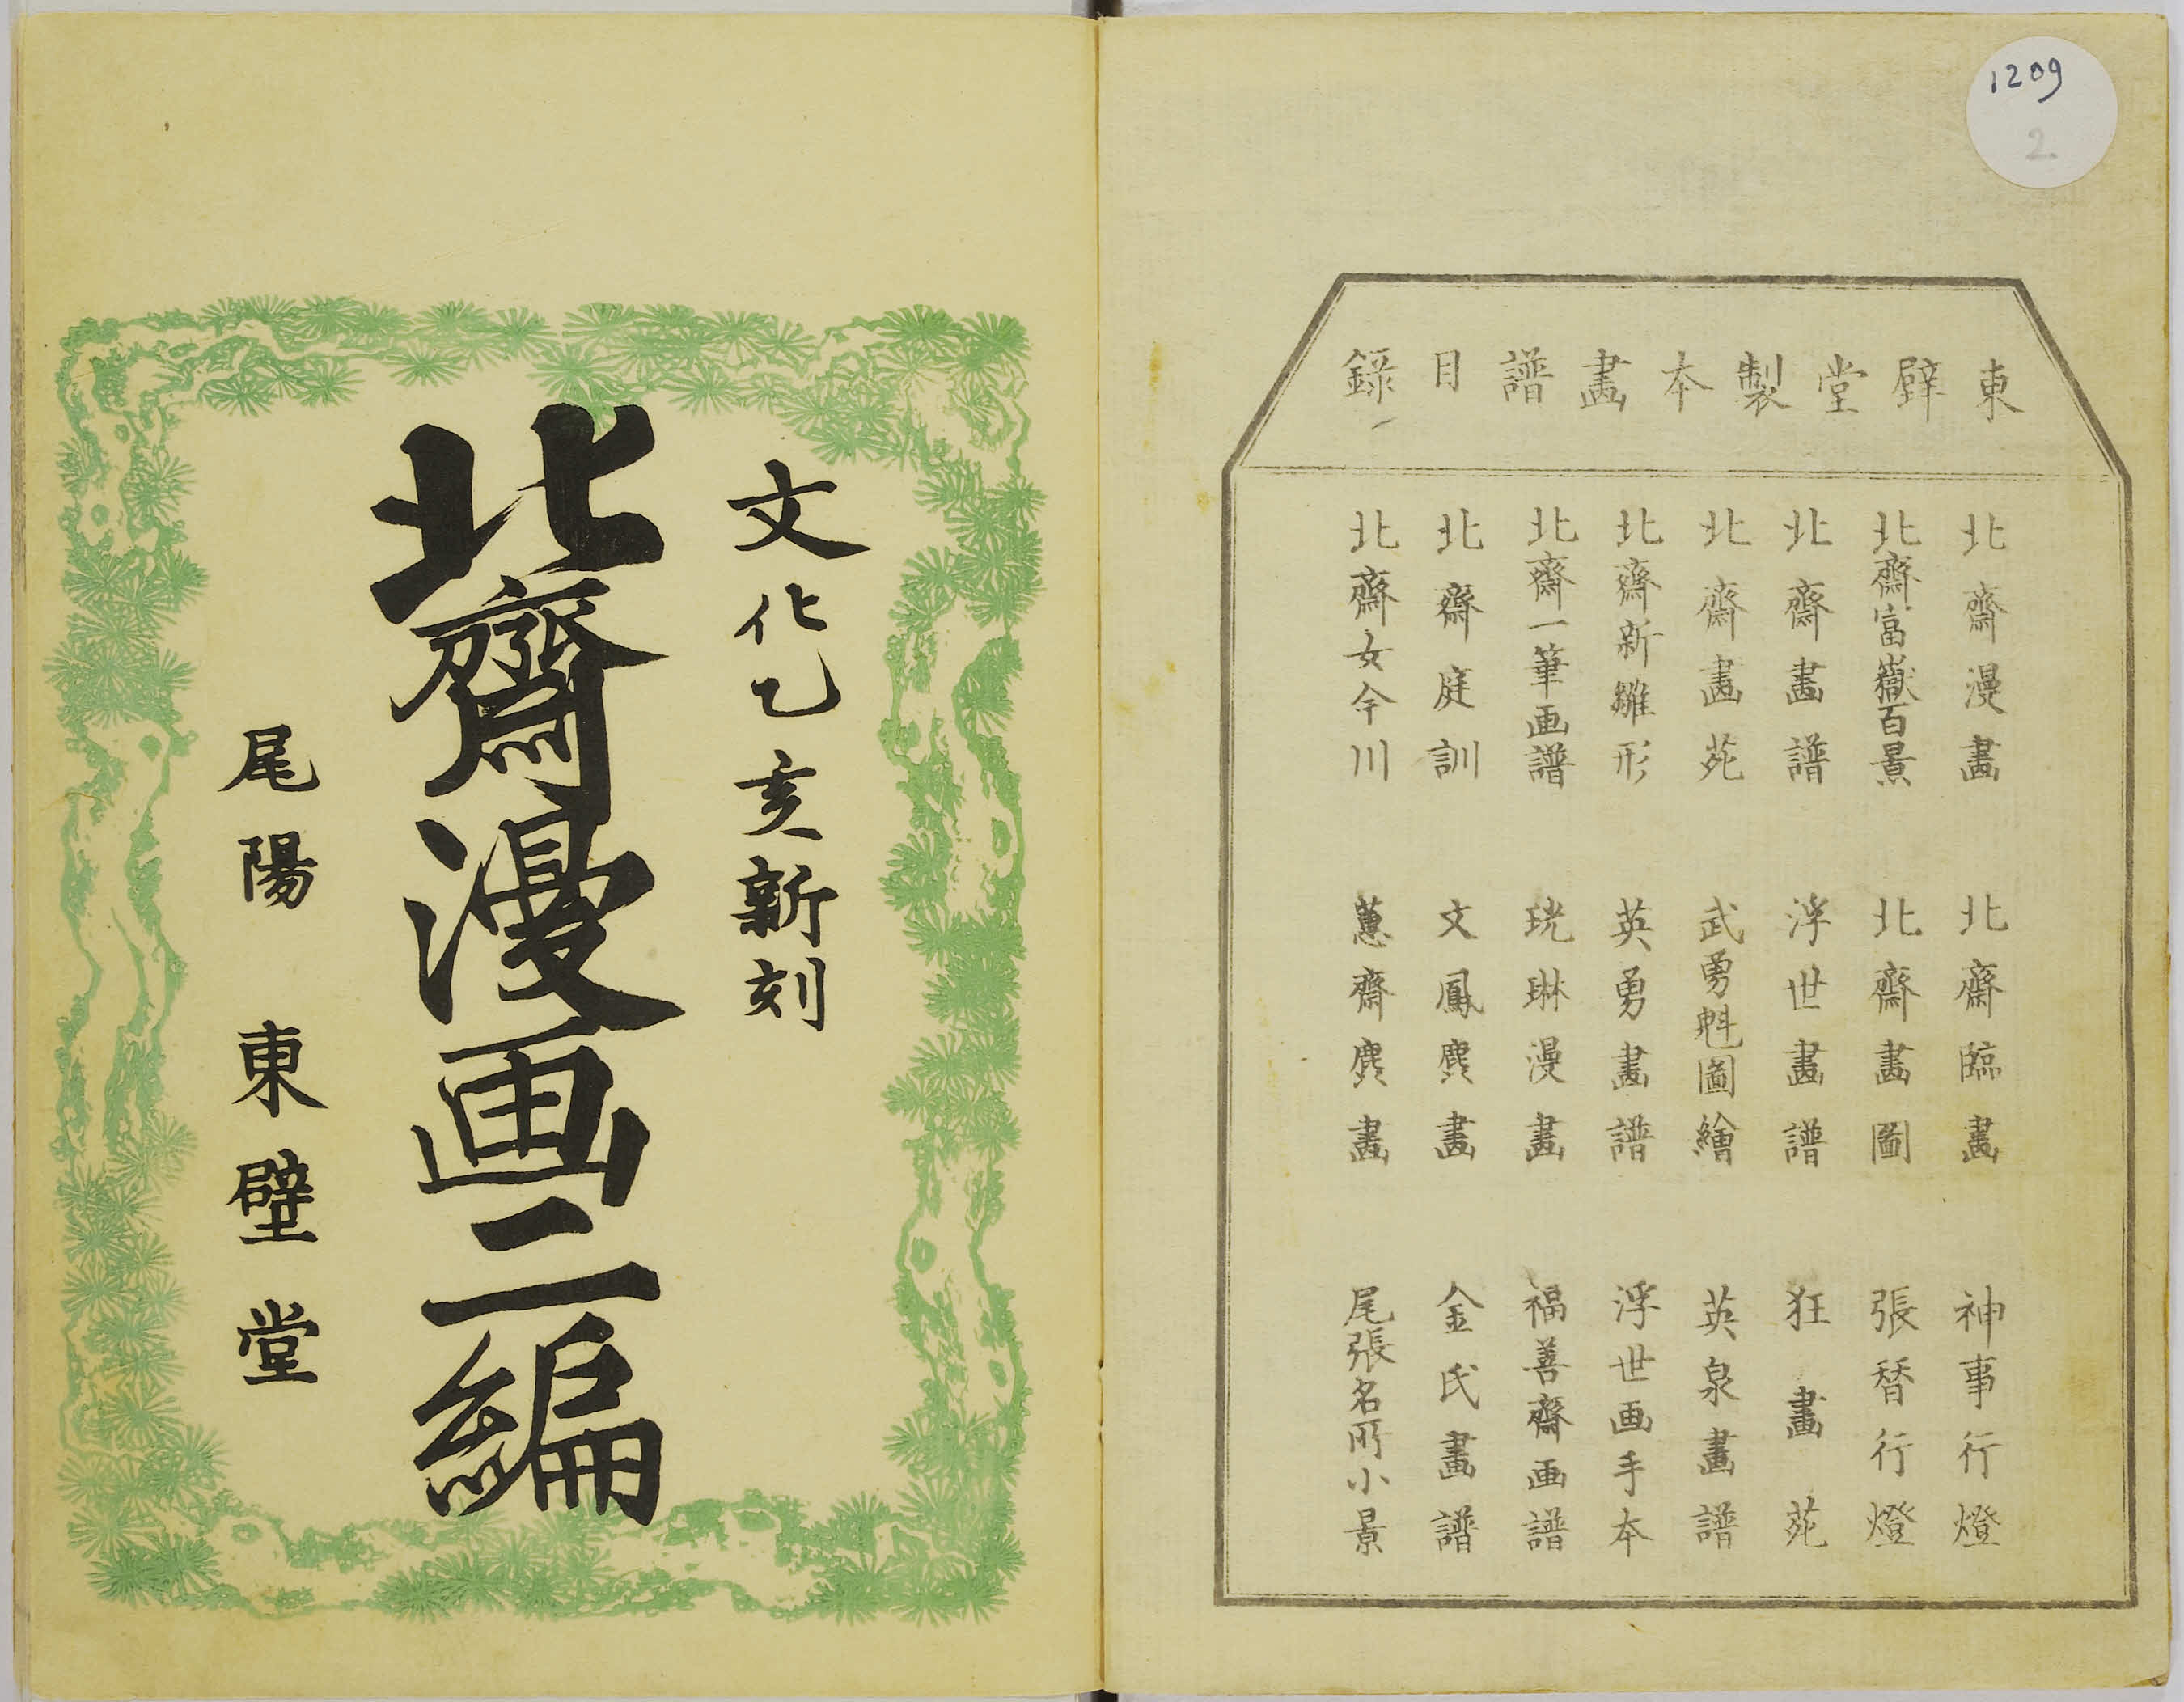 1209
2
東壁堂製本畫譜目録
北齋漫畫
北齋臨畫
神事行燈
北齋富嶽百景
北齋畫圖
張替行燈
北齋畫譜
浮世畫譜
狂畫苑
北齋畫苑
武勇魁圖繪
英泉畫譜
北齋新雛形
英勇畫譜
浮世画手本
北齋一筆画譜
珖琳漫畫
福善齋画譜
北齋庭訓
文鳳麁畫
金氏畫譜
北齋女今川
蕙齋麁畫
尾張名所小景
文化乙亥新刻
北齋漫画二編
尾陽 東壁堂